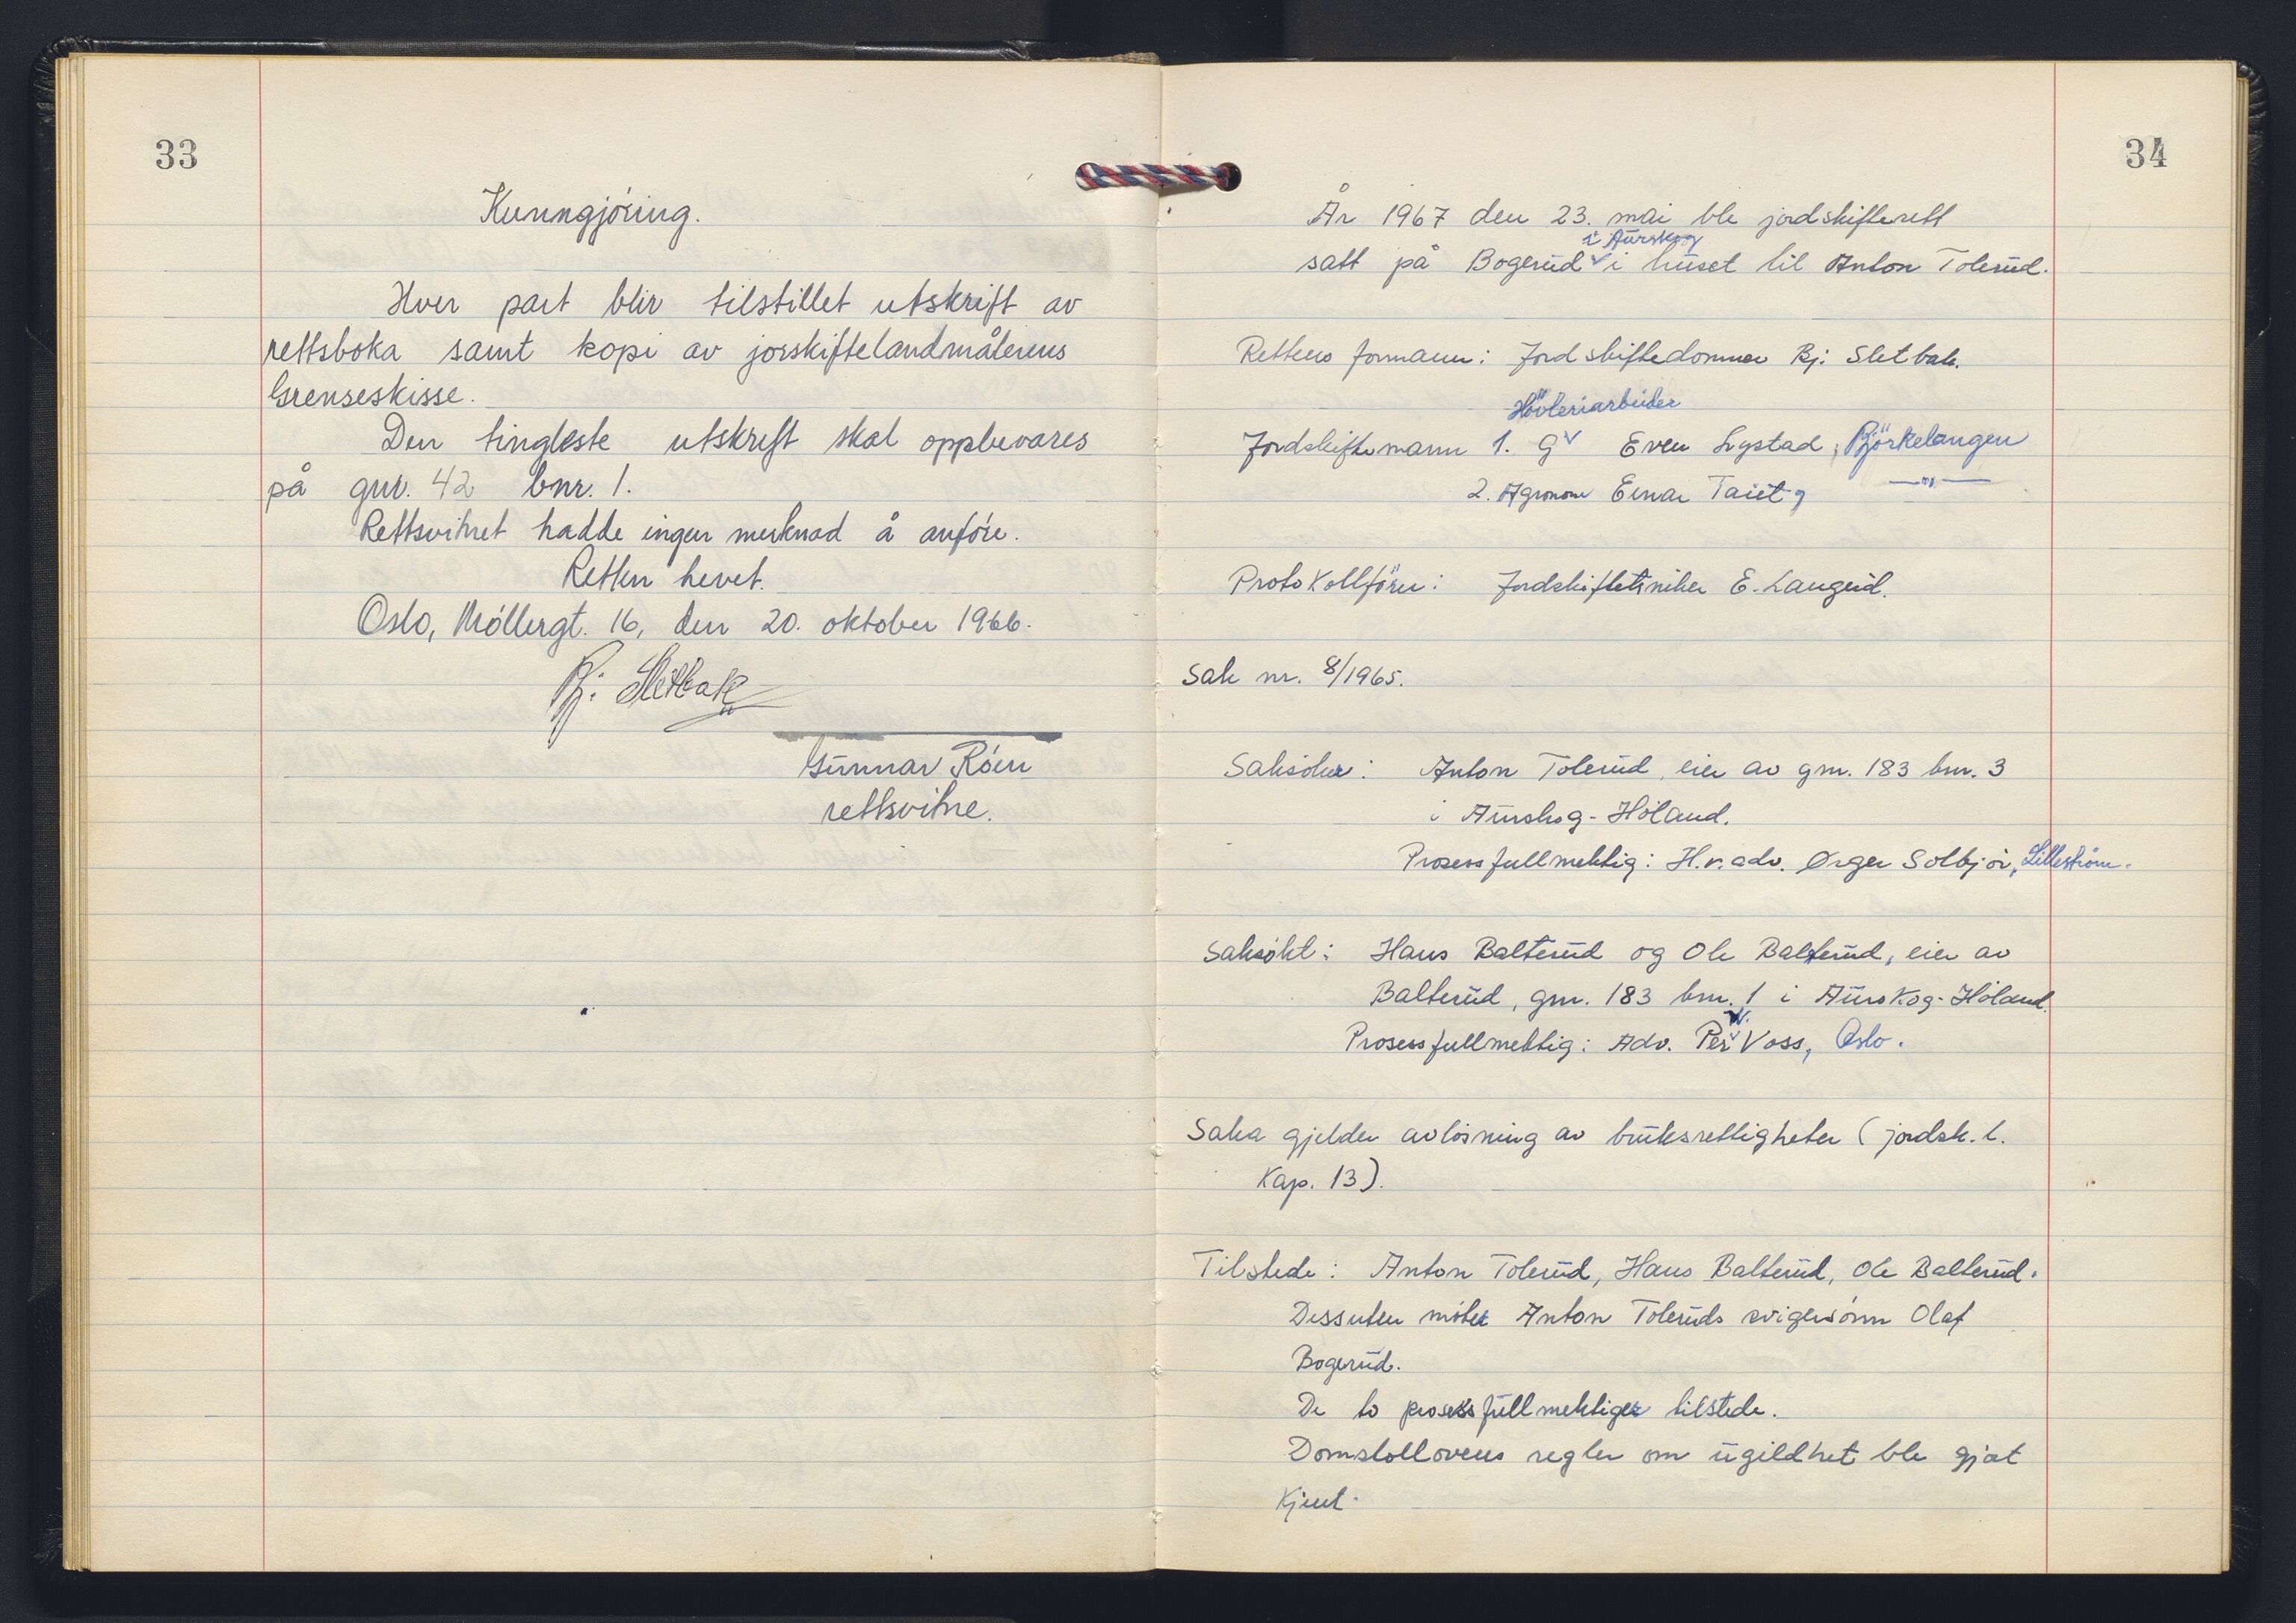 33
Kunngjöring.
Hver part blir tilstillet utskrift av
rettsboka samt kopi av jorskiftelandmålerens
Grenseskisse.
Den tingleste utskrift skal oppbevares
på gnr. 42 bnr. 1.
Rettsvitnet hadde ingen merknad å anföre.
Retten hevet.
Oslo, Möllergt. 16, den 20. oktober 1966.
Bj. Sletbak
Gunnar Röen
rettsvitne.
34
År 1967 den 23. mai ble jordskifterett
i Aurskog
satt på Bogerud i huset til Anton Tolerud.
Rettens formann: Jordskiftedommer Bj. Sletbak.
Hövleriarbeider
Jordskiftemann 1. G Even Lystad, Björkelangen
2. Agronom Einar Taiet, —"—
Protokollförer: Jordskiftetekniker E. Langerud.
Sak nr. 8/1965.
Saksöker: Anton Tolerud, eier av gnr. 183 bnr. 3
i Aurskog-Höland.
Prosessfullmektig: H.r.adv. Ørger Solbjör, Lilleström.
Saksökt: Hans Balterud og Ole Balterud, eier av
Balterud, gnr. 183 bnr. 1 i Aurskog-Höland.
W.
Prosessfullmektig: Adv. Per Voss, Oslo.
Saka gjelder avlösning av bruksrettigheter (jordsk.l.
Kap. 13).
Tilstede: Anton Tolerud, Hans Balterud, Ole Balterud.
Dessuten möter Anton Toleruds svigersönn Olaf
Bogerud.
De to prosessfullmektiger tilstede.
Domstollovens regler om ugildhet ble gjort
Kjent.